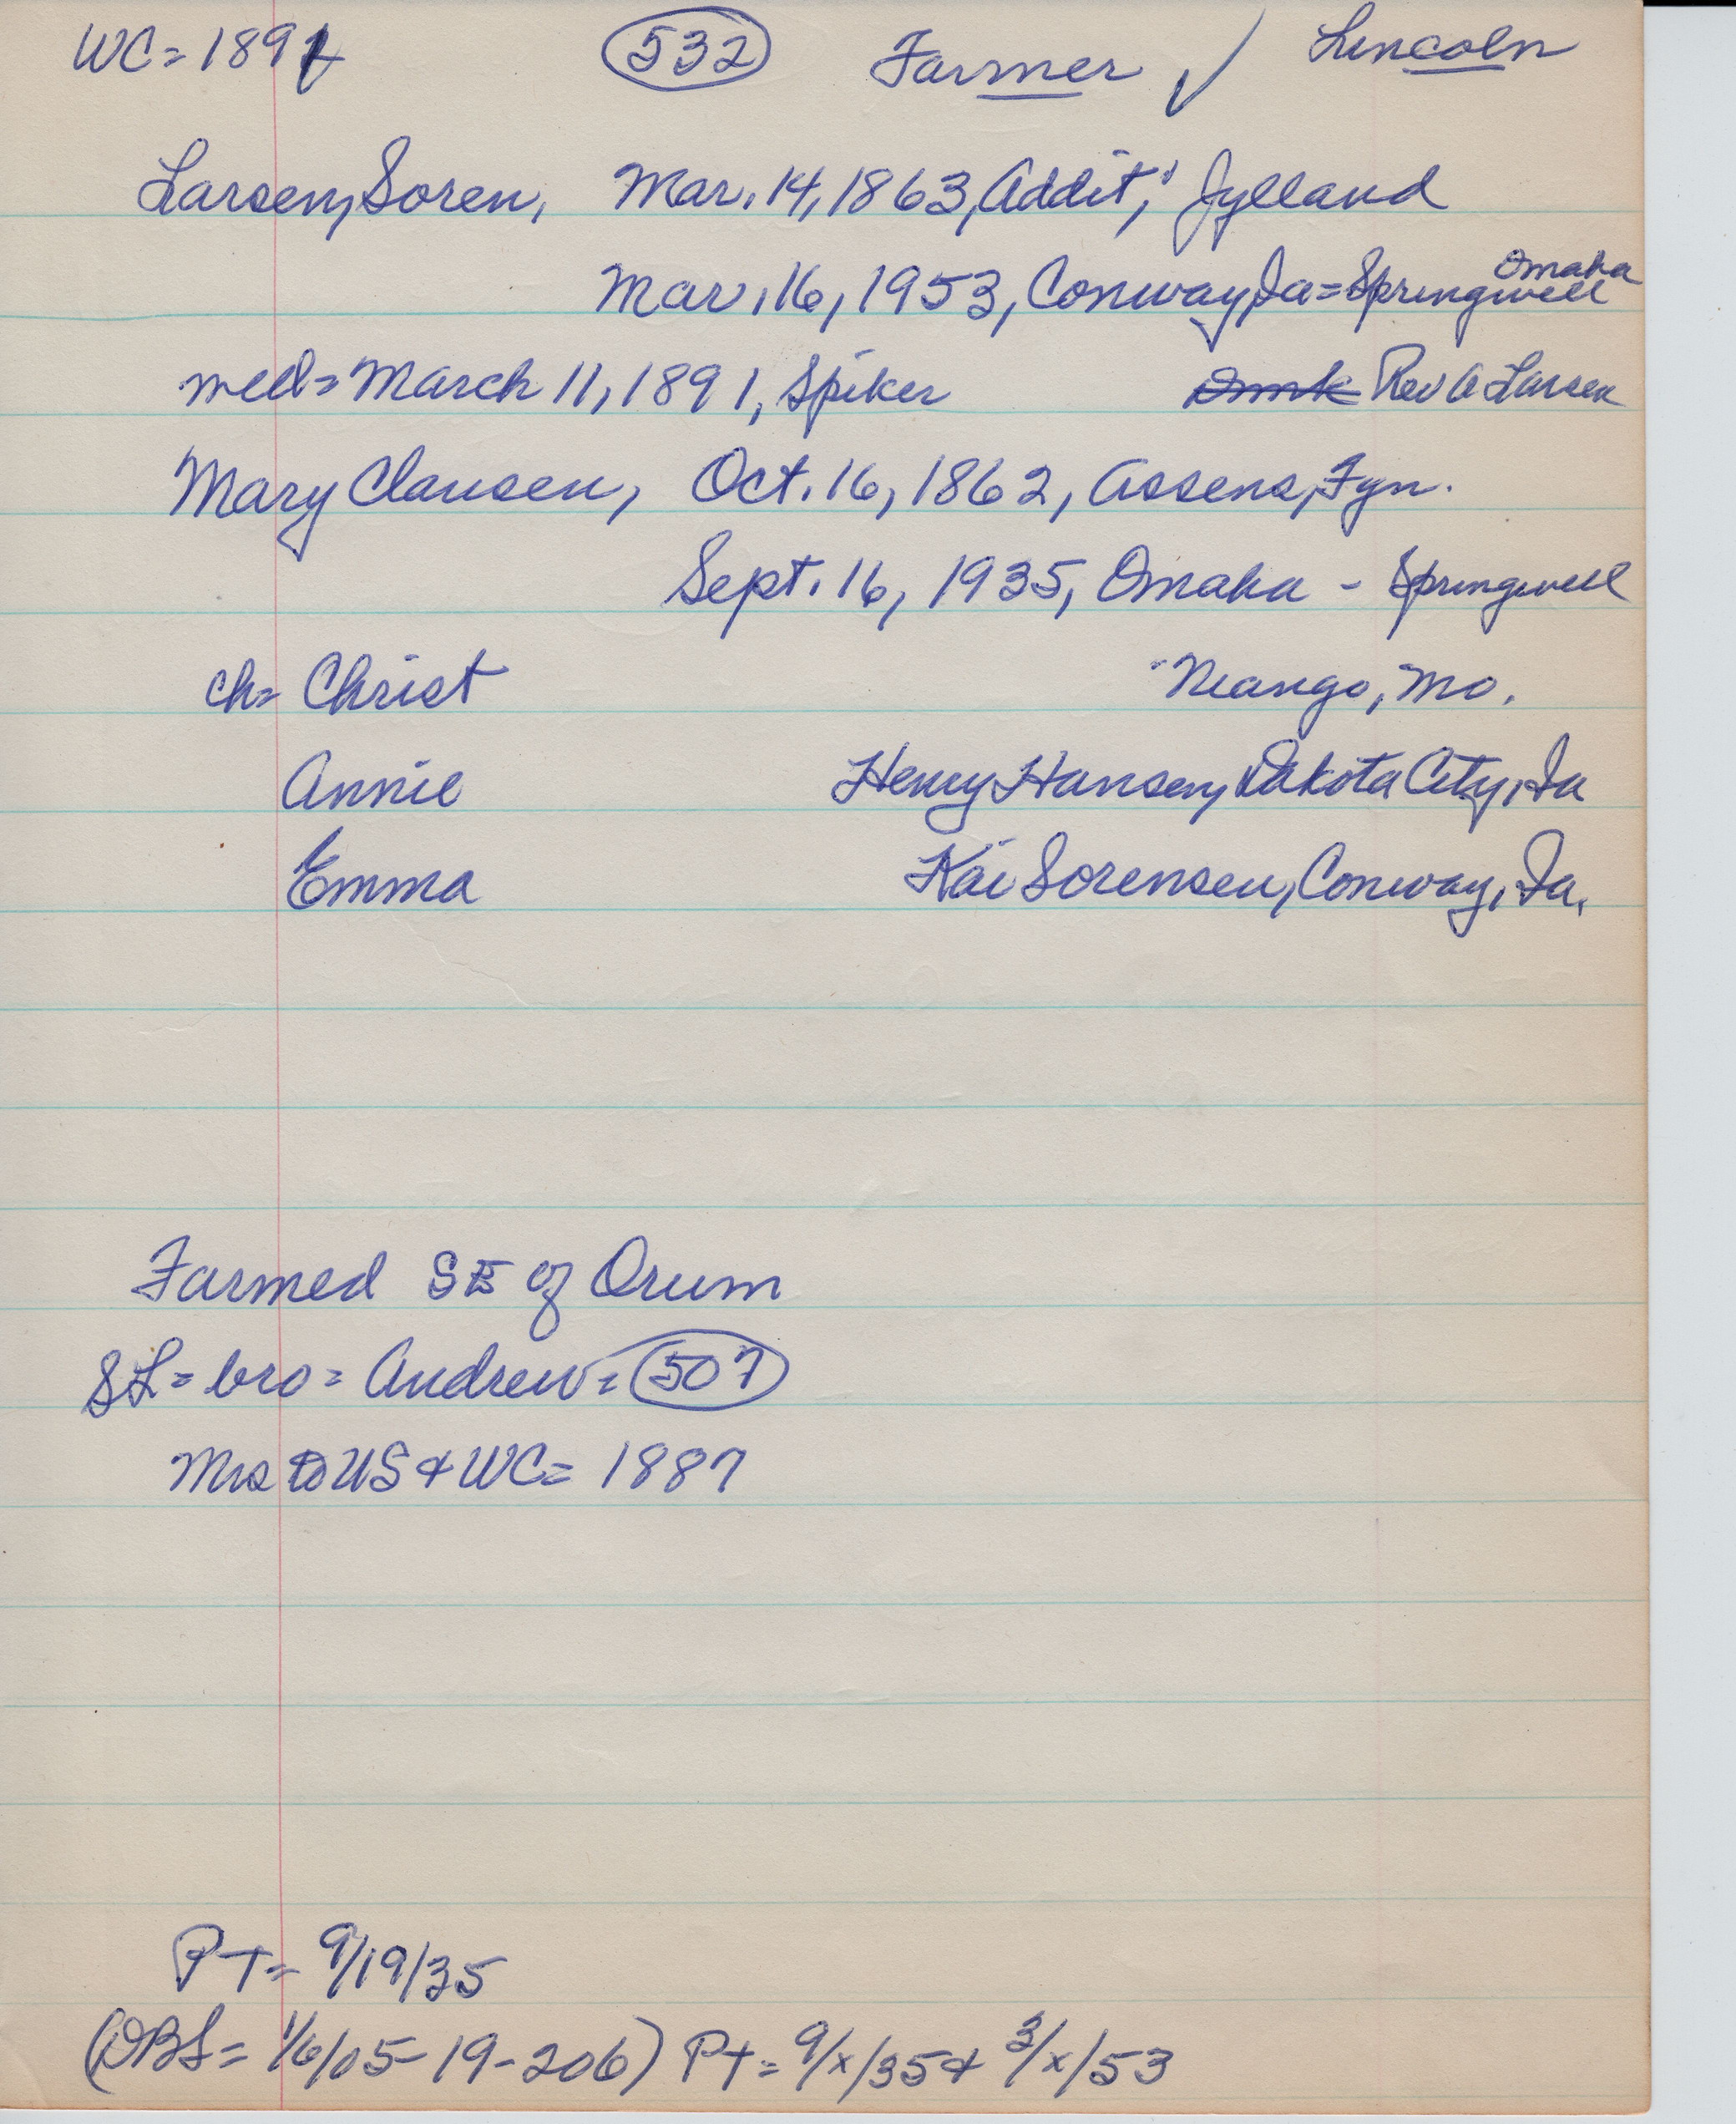 WC = 1891 532 Farmer ✓ Lincoln
Larsen, Soren, Mar. 14, 1863, Addit, Jylland
Omaha
Mar. 16, 1953, Conway, Ia = Springwell
wed = March 11, 1891, Spiker Rev A Larsen
Mary Clausen, Oct. 16, 1862, Assens, Fyn.
Sept. 16, 1935, Omaha - Springwell
ch = Christ Neango, Mo.
Annie Henry Hansen, Dakota City, Ia
Emma Kai Sorensen, Conway, Ia.
Farmed SE of Orum
SL = bro = Andrew = 507
Mrs to US & WC = 1887
PT = 9/19/35
(DBS = 1/6/05 - 19 - 206) PT = 9/x/35 & 3/x/53